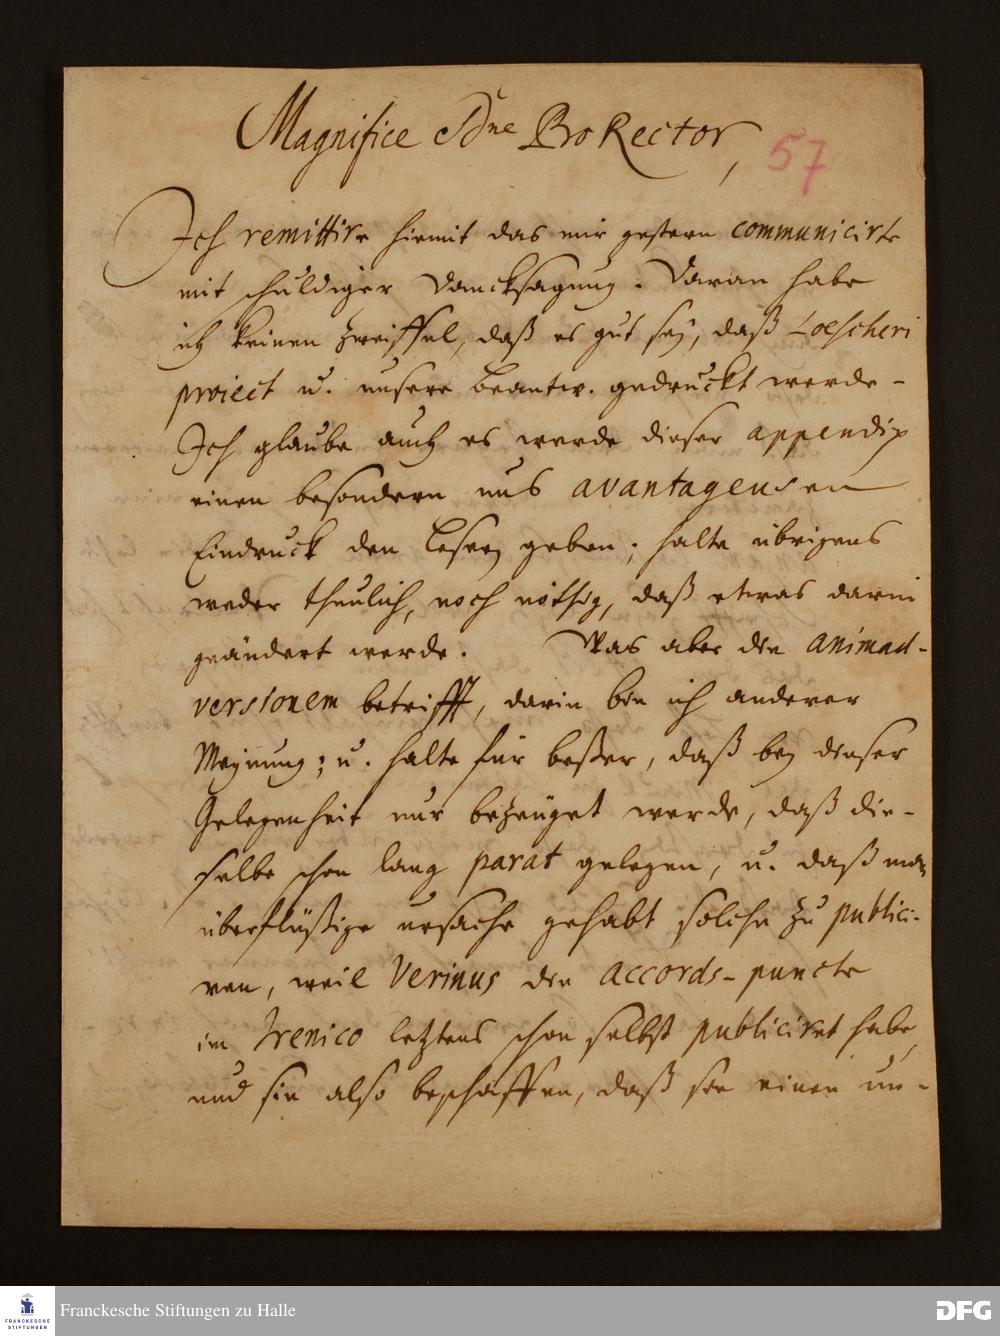 Magnifice Dne ProRector,
57
Ich remittire hiermit das mir gestern communicirte
mit schuldiger Dancksagung. Daran habe
ich keinen Zweiffel, daß es gut sey, daß Loescheri
proiect u. unsere beantw. gedruckt werde.
Ich glaube auch es werde dieser appendix
einen besondern uns avantageusen
Eindruck den Lesern geben; halte übrigens
weder thunlich, noch nöthig, daß etwas darin
geändert werde. Was aber die animad-
versionem betrifft, darin bin ich anderer
Meynung; u. halte für beßer, daß bey dieser
Gelegenheit nur bezeüget werde, daß die-
selbe schon lang parat gelegen, u. daß man
überflüßige ursache gehabt solche zu publici-
ren, weil Verinus die accords-puncte
im Irenico letztens schon selbst publiciret habe,
und sie also beschaffen, daß sie einen un-
Franckesche Stiftungen zu Halle
FRANCKESCHE
STIFTUNGEN
DFG